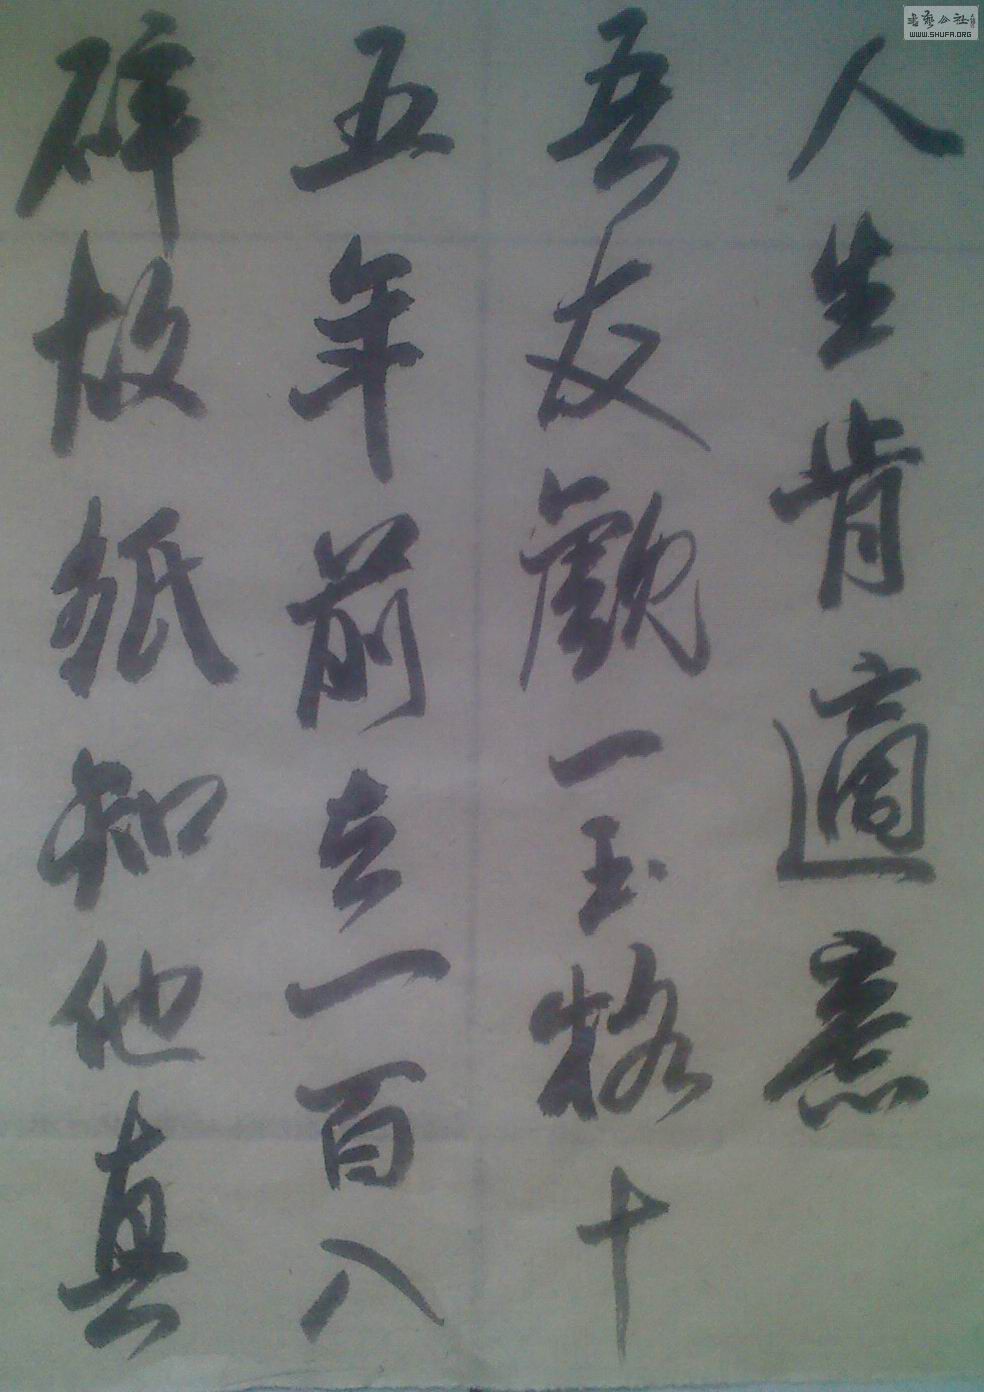 人生肯適意
吾友觀一玉格十
五年前立一百八
碎故紙知他真
書藝公社
WWW.SHUFA.ORG